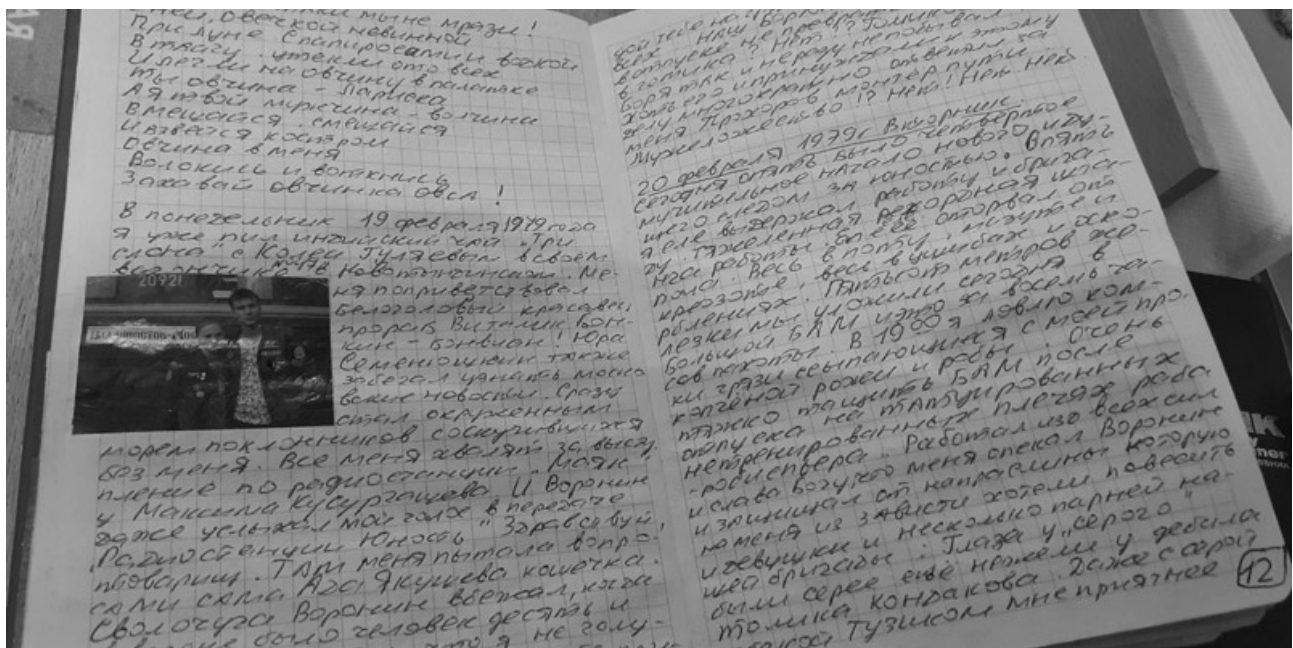 мы не мрази!
овечкой невинной
При луне с папиросами и водкой
В тлагу утекли ото всех
И легли на овчину в палатке
Ты овчина - Лариска
А я твой мужчина - волчина
Вмещайся смещайся
И взвейся костром
Овчина в меня
Волокись и воткнись
Захавай овчинка овса!
В понедельник 19 февраля 1979 года
я уже пил индийский чай „Три
слона" с Колей Гуляевым в своём
вагончике в Новотынинском. Ме-
ня поприветствовал
белоголовый красавец
прораб Виталик Вон-
кин - Бонвиан! Юра
Семенюшкин также
забегал узнать моско
вские новости. Сразу
стал окружённым
морем поклонников соскучившихся
без меня. Все меня хвалят за высту
пление по радиостанции „Маяк
у Максима Кусургашева. И Воронин
даже услыхал мой голос в передаче
Радиостанции Юность „Здравствуй,
товарищ". Там меня пытала вопро-
сами сама Ада Якушева кошечка.
Сволочуга Воронин вбежал, когда
было человек десять и
что я не голу-
20921
Владивосток-Мо
бой тебе на
всех наш
в отпуске не преврат
в гомика? Нет!? Голиков
боря так и нероду непобывал
хоть его и принуждали к этому
делу многократно отвечал за
меня Прохоров монтёр пути.
Мужеложество!? Нет! Нет. Нет
20 февраля 1979г Вторник
Сегодня опять было четвертое
мучительное начало нового иду-
щего следом за юностью. Опять
я еле выдержал работу и брига-
ду. Тяжеленная рекордная шпа-
ла работы. Еле её оторвал от
пола. Весь в поту, мазуте и
креозоте, весь в ушибах и оско-
рблениях. Пятьсот метров же-
лезки мы уложили сегодня в
Большой БАМ и это за восемь ча-
сов пахоты. В 1900 я давлю ком-
ки грязи ссыпающиеся с моей про
копчёной рожи и робы. Очень
тяжко тащить БАМ после
отпуска на татуированных
нетренированных плечах раба
-робиспьера. Работал изо всех сил
и слава Богу что меня опекал Воронин
и защищал от напраслины которую
на меня из зависти хотели повесить
и девушки и несколько парней на-
шей бригады. Глаза у „серого"
были серее ещё нежели у дебила
толика Кондакова. Даже с серой
Тузиком мне приятнее
12